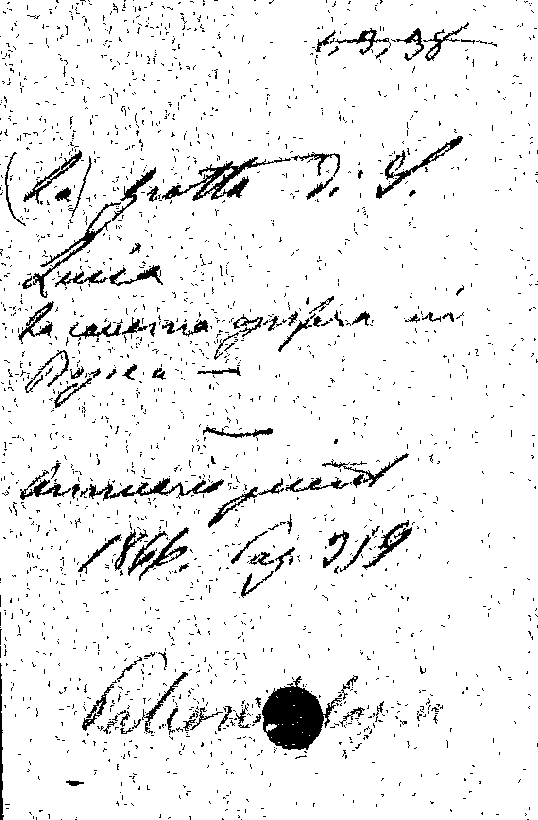 1, 3, 38
(La) grotta d. S.
Lucia
la caverna ossifera in
Annuario scient
1866. Pag. 319